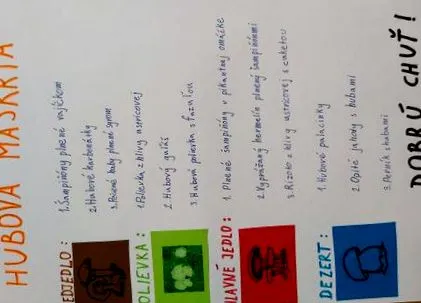 HUBOVÁ MAŠKRTA
EDJEDLO:
1. Šampiňóny plnené vajíčkom
2. Hubové karbonátky
3. Pečené huby plnené syrom
OLIEVKA:
1. Polievka z hlivy ustricovej
2. Hubový guľáš
3. Hubová polievka s fazuľou
HLAVNÉ JEDLO:
1. Plnené šampiňóny v pikantnej omáčke
2. Vyprážaný hermelín plnený šampiňónmi
3. Rizoto z hlivy ustricovej s cuketou
DEZERT:
1. Hubové palacinky
2. Opité jahody s hubami
3. Perník s hubami
DOBRÚ CHUŤ!